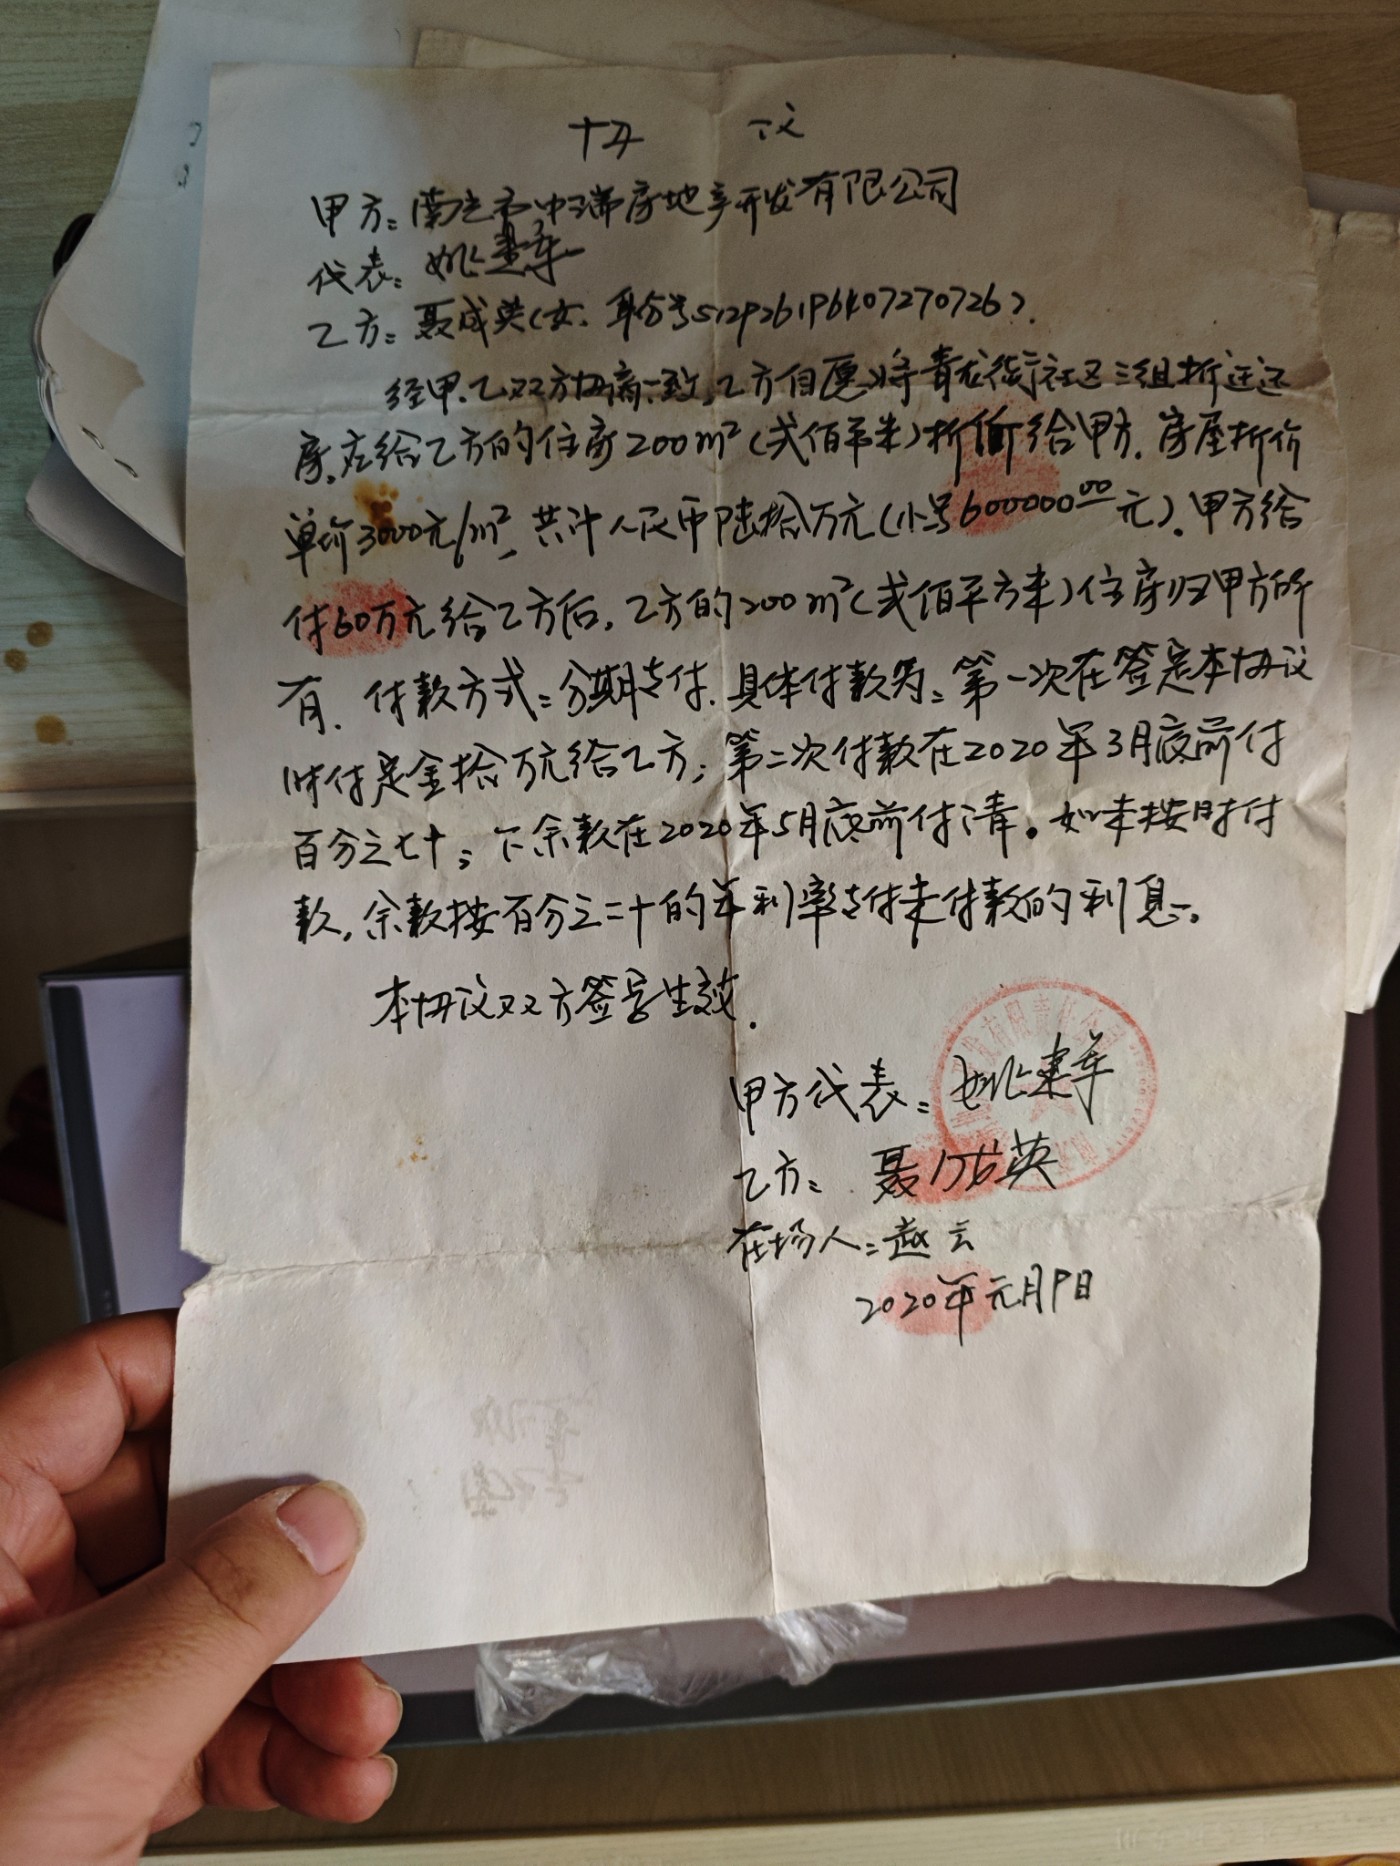 协 议
甲方:南充市中瑞房地产开发有限公司
代表:姚建军
乙方:聂成英(女、身份号512926196407270726).
经甲、乙双方协商一致,乙方自愿将青龙街社区三组拆迁还
房,应给乙方的住房200m²(贰佰平米)折价给甲方.房屋折价
单价3000元/m²,共计人民币陆拾万元(小号600000⁰⁰元).甲方给
付60万元给乙方后,乙方的200m²(贰佰平方米)住房归甲方所
有.付款方式:分期支付.具体付款为:第一次在签定本协议
时付定金拾万元给乙方;第二次付款在2020年3月底前付
百分之七十;下余款在2020年5月底前付清。如未按时付
款,余款按百分之二十的年利率支付未付款的利息。
本协议双方签字生效.
甲方代表:姚建军
乙方:聂成英
在场人:赵云
2020年元月9日